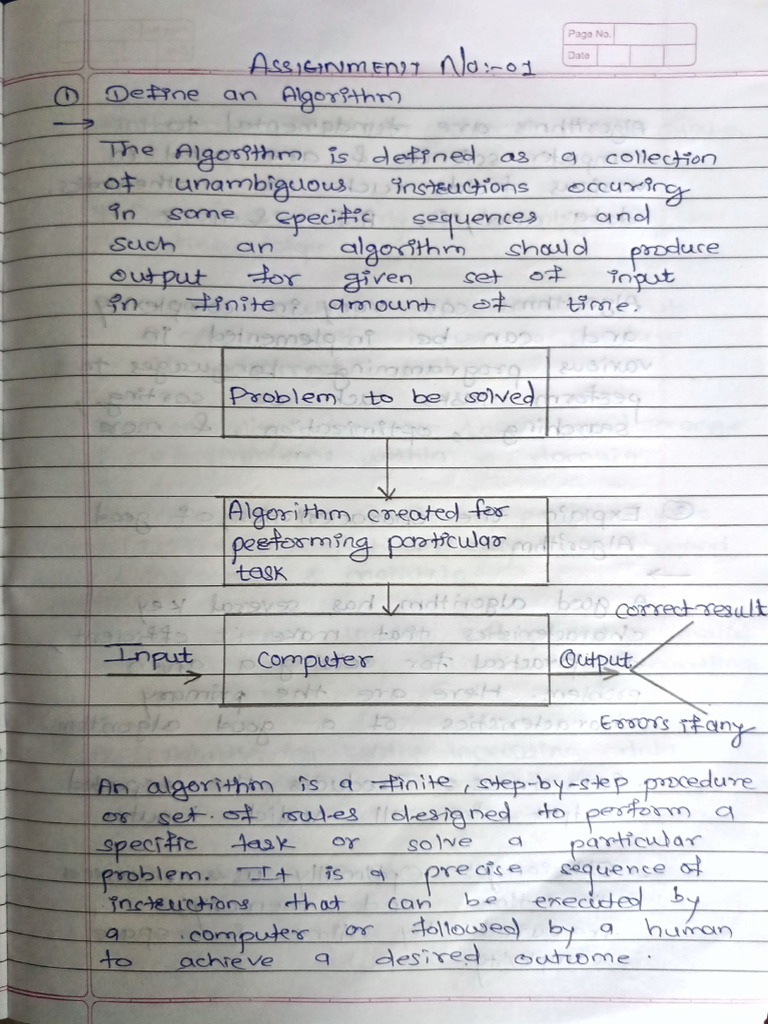 Page No.
Date
ASSIGNMENT No:-01
① Define an Algorithm
→
The Algorithm is defined as a collection
of unambiguous instructions occuring
in some specific sequences and
such an algorithm should produce
output for given set of input
in finite amount of time.
Problem to be solved
Algorithm created for
performing particular
task
correct result
Input computer Output
Errors if any
An algorithm is a finite, step-by-step procedure
or set of rules designed to perform a
specific task or solve a particular
problem. It is a precise sequence of
instructions that can be executed by
a computer or followed by a human
to achieve a desired outcome.